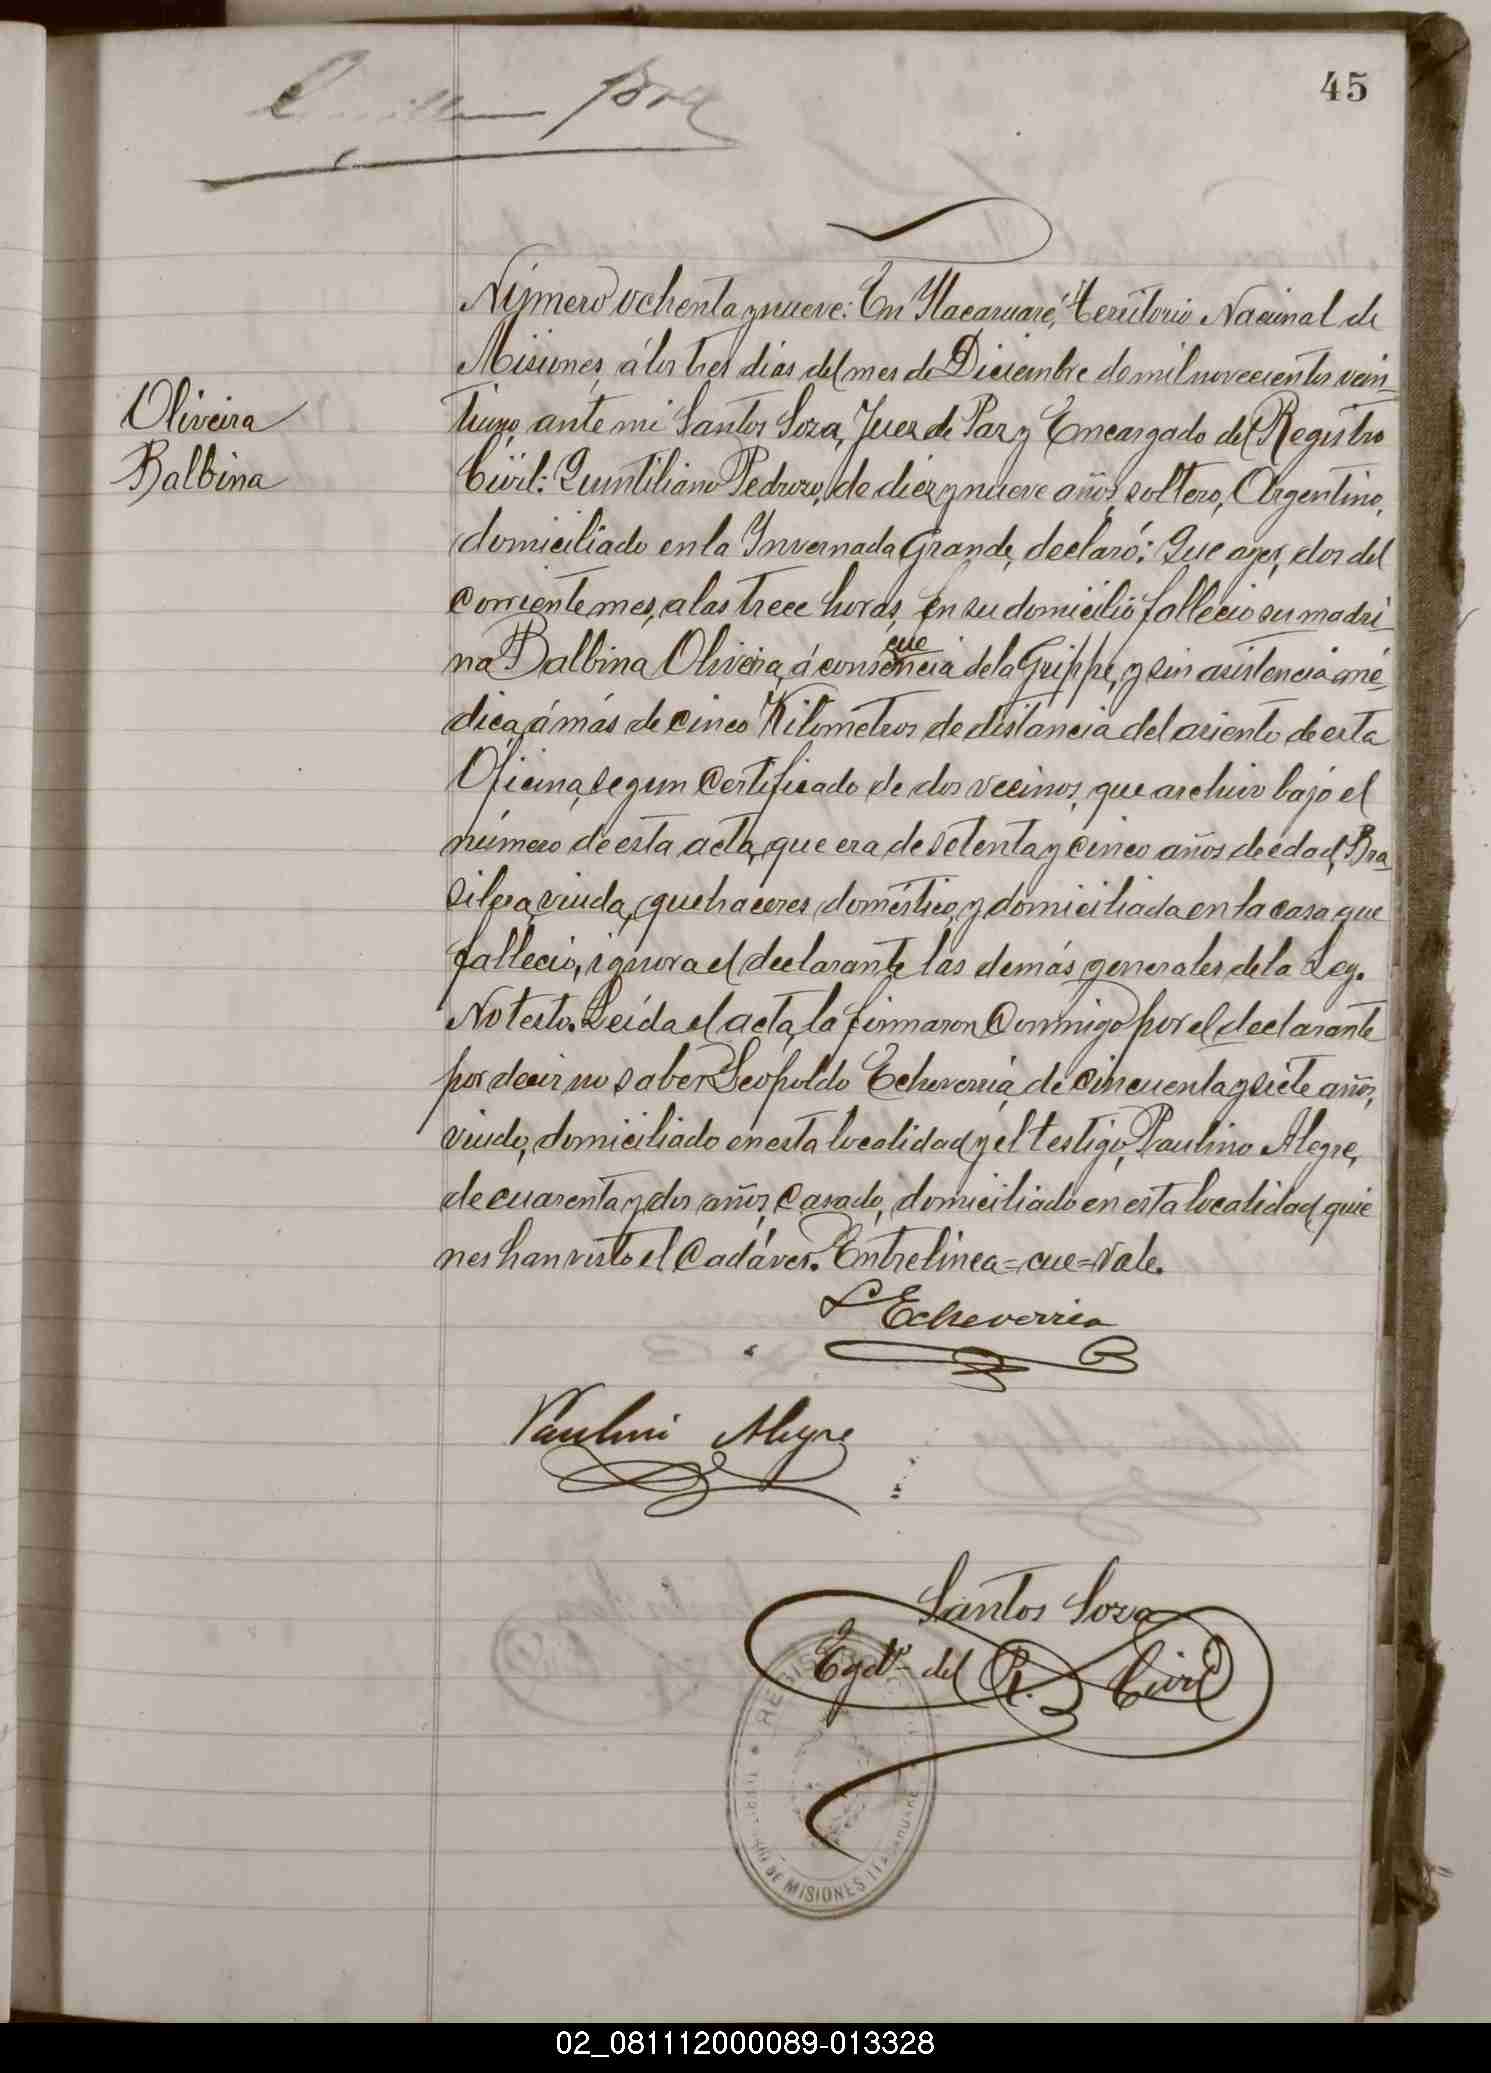 45
Número ochenta y nueve: En Itacaruaré, Territorio Nacional de
Misiones, á los tres dias del mes de Diciembre de mil novecientos vein-
tiuno, ante mi Santos Soza, Juez de Paz y Encargado del Registro
Oliveira
Balbina
Civil: Quintiliano Pedrozo, de diez y nueve años, soltero, Argentino,
domiciliado en la Invernada Grande, declaró: Que ayer, dos del
corriente mes, a las trece horas, en su domicilio fallecio su madri-
na Balbina Oliveira, á consecuencia de la Grippe, y sin asistencia mé-
dica, á más de cinco Kilómetros de distancia del asiento de esta
Oficina, segun certificado de dos vecinos, que archivo bajo el
número de esta acta, que era de setenta y cinco años de edad, Bra-
silera, viuda, quehaceres doméstico, y domiciliada en la casa que
falleció, ignora el declarante las demás generales de la Ley.
No testo. Leída el acta, la firmaron conmigo por el declarante
por decir no saber Leopoldo Echeverria, de cincuenta y siete años,
viudo, domiciliado en esta localidad y el testigo, Paulino Alegre,
de cuarenta y dos años, casado, domiciliado en esta localidad, quie
nes han visto el cadáver. Entrelínea=cue=Vale.
L Echeverria
Paulino Alegre
Santos Soza
Egdo. del R. Civil
REGISTRO
DE MISIONES ITACARUARE
02_081112000089-013328